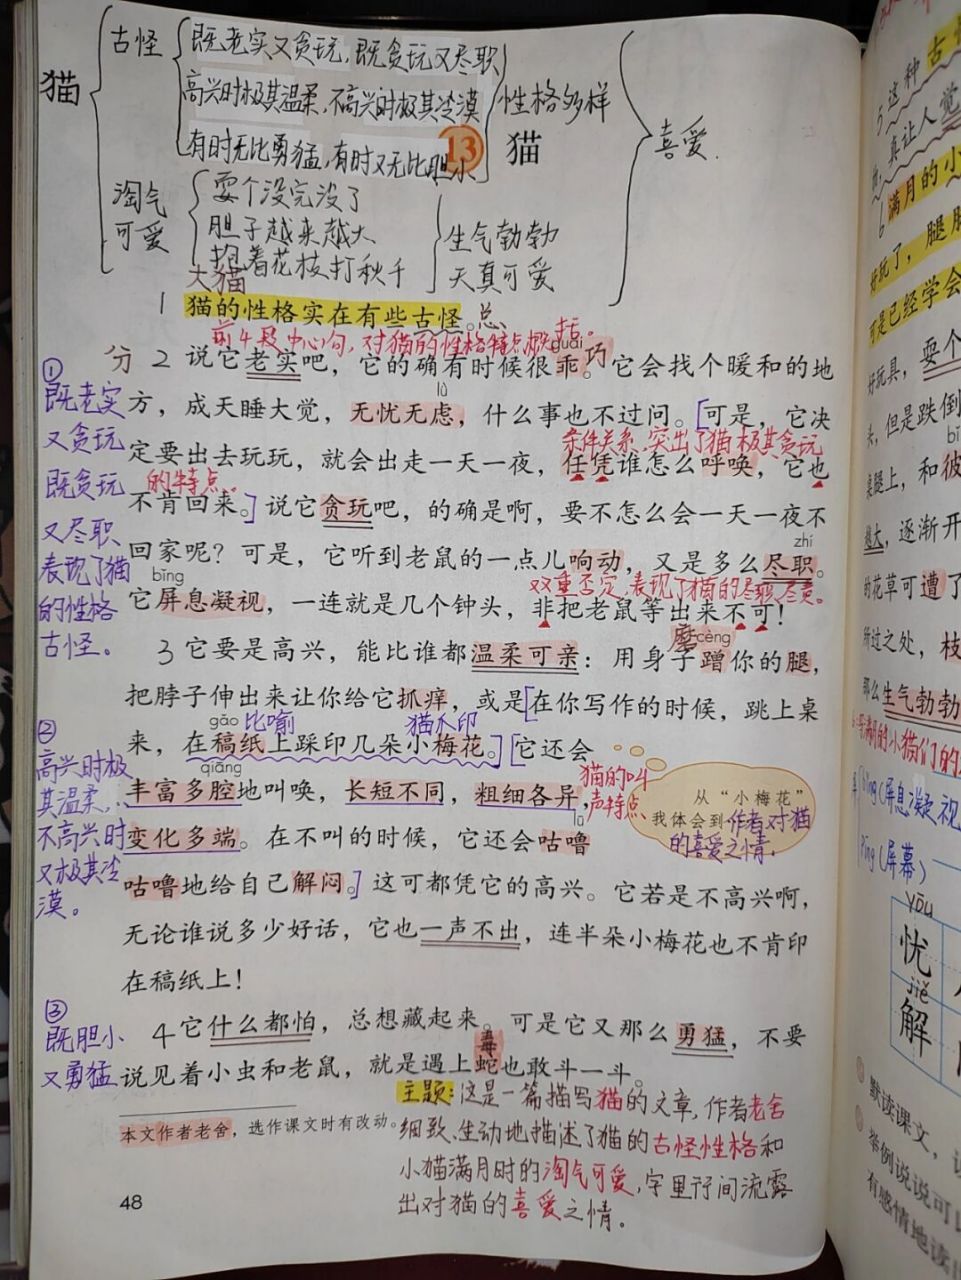 猫
古怪
既老实又贪玩,既贪玩又尽职
高兴时极其温柔,不高兴时极其冷漠
有时无比勇猛,有时又无比胆小
性格多样
13 猫
喜爱.
淘气
可爱
耍个没完没了
胆子越来越大
抱着花枝打秋千
生气勃勃
天真可爱
大猫
1 猫的性格实在有些古怪。总
guāi
分 2 说它老实吧,它的确有时候很乖。巧它会找个暖和的地
lǜ
方,成天睡大觉,无忧无虑,什么事也不过问。[可是,它决
条件关系.突出了猫极其贪玩
定要出去玩玩,就会出走一天一夜,任凭谁怎么呼唤,它也
的特点。
不肯回来。]说它贪玩吧,的确是啊,要不怎么会一天一夜不
zhí
回家呢?可是,它听到老鼠的一点儿响动,又是多么尽职。
bǐng
双重否定,表现了猫的尽职尽责。
它屏息凝视,一连就是几个钟头,非把老鼠等出来不可!
磨 cèng
3 它要是高兴,能比谁都温柔可亲:用身子蹭你的腿,
把脖子伸出来让你给它抓痒,或是[在你写作的时候,跳上桌
gǎo 比喻 猫爪印
来,在稿纸上踩印几朵小梅花。][它还会
qiāng
丰富多腔地叫唤,长短不同,粗细各异,
猫的叫
声特点
变化多端。在不叫的时候,它还会咕噜
lū
咕噜地给自己解闷。]这可都凭它的高兴。它若是不高兴啊,
无论谁说多少好话,它也一声不出,连半朵小梅花也不肯印
在稿纸上!
从“小梅花”
我体会到作者对猫
的喜爱之情.
4 它什么都怕,总想藏起来。可是它又那么勇猛,不要
毒
说见着小虫和老鼠,就是遇上蛇也敢斗一斗。
①
既老实
又贪玩
既贪玩
又尽职
表现了猫
的性格
古怪。
②
高兴时极
其温柔,
不高兴时
又极其冷
漠。
③
既胆小
又勇猛
主题:这是一篇描写猫的文章,作者老舍
细致、生动地描述了猫的古怪性格和
小猫满月时的淘气可爱,字里行间流露
出对猫的喜爱之情。
本文作者老舍,选作课文时有改动。
48
5 这种古
真让人觉
6 满月的小
好玩了,腿脚
可是已经学会
好玩具,耍个
头,但是跌倒
bǐ
桌腿上,和彼
越大,逐渐开
的花草可遭了
所过之处,枝
那么生气勃勃
满月的小猫们的
bǐng(屏息凝视
píng(屏幕)
yōu
忧
jiě
解
默读课文,
举例说说可
有感情地读